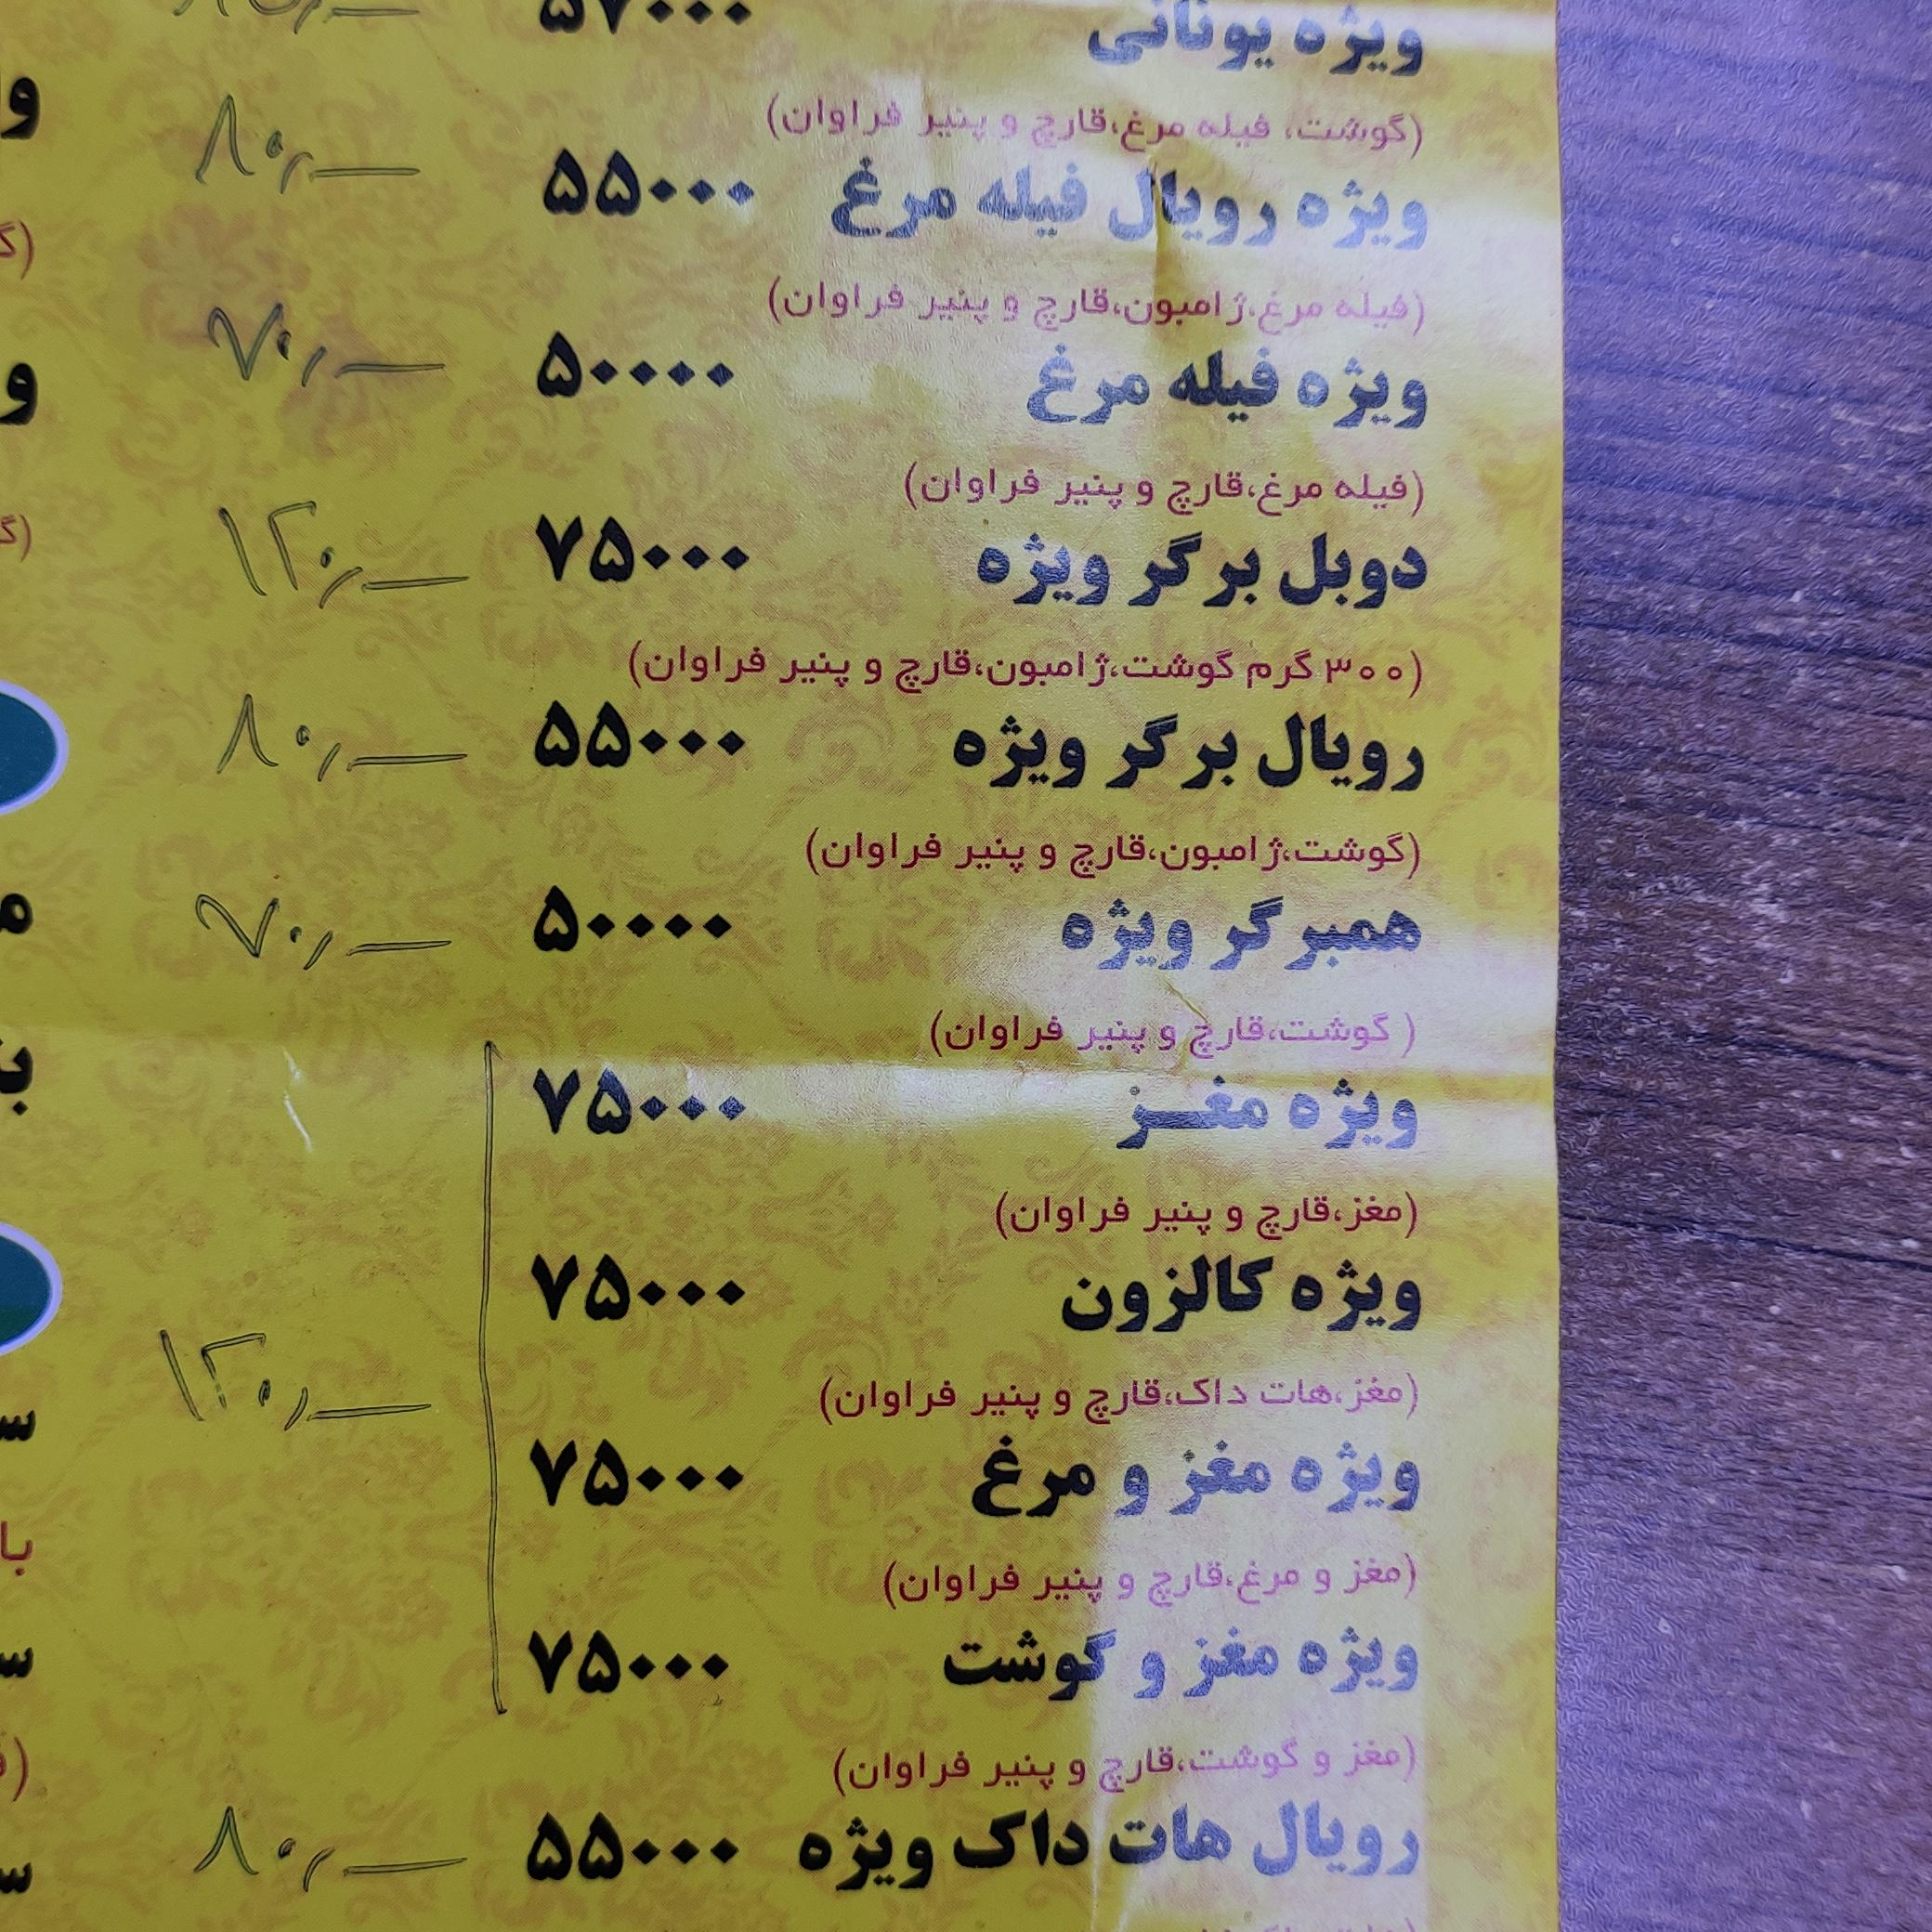 ویژه یونانی ۵۷۰۰۰
(گوشت، فیله مرغ،قارچ و پنیر فراوان)
ویژه رویال فیله مرغ ۵۵۰۰۰ ۸۰٫—
(فیله مرغ،ژامبون،قارچ و پنیر فراوان)
ویژه فیله مرغ ۵۰۰۰۰ ۷۰٫—
(فیله مرغ،قارچ و پنیر فراوان)
دوبل برگر ویژه ۷۵۰۰۰ ۱۲۰٫—
(۳۰۰ گرم گوشت،ژامبون،قارچ و پنیر فراوان)
رویال برگر ویژه ۵۵۰۰۰ ۸۰٫—
(گوشت،ژامبون،قارچ و پنیر فراوان)
همبرگر ویژه ۵۰۰۰۰ ۷۰٫—
( گوشت،قارچ و پنیر فراوان)
ویژه مغـز ۷۵۰۰۰
(مغز،قارچ و پنیر فراوان)
ویژه کالزون ۷۵۰۰۰ ۱۲۰٫—
(مغز،هات داک،قارچ و پنیر فراوان)
ویژه مغز و مرغ ۷۵۰۰۰
(مغز و مرغ،قارچ و پنیر فراوان)
ویژه مغز و گوشت ۷۵۰۰۰
(مغز و گوشت،قارچ و پنیر فراوان)
رویال هات داک ویژه ۵۵۰۰۰ ۸۰٫—